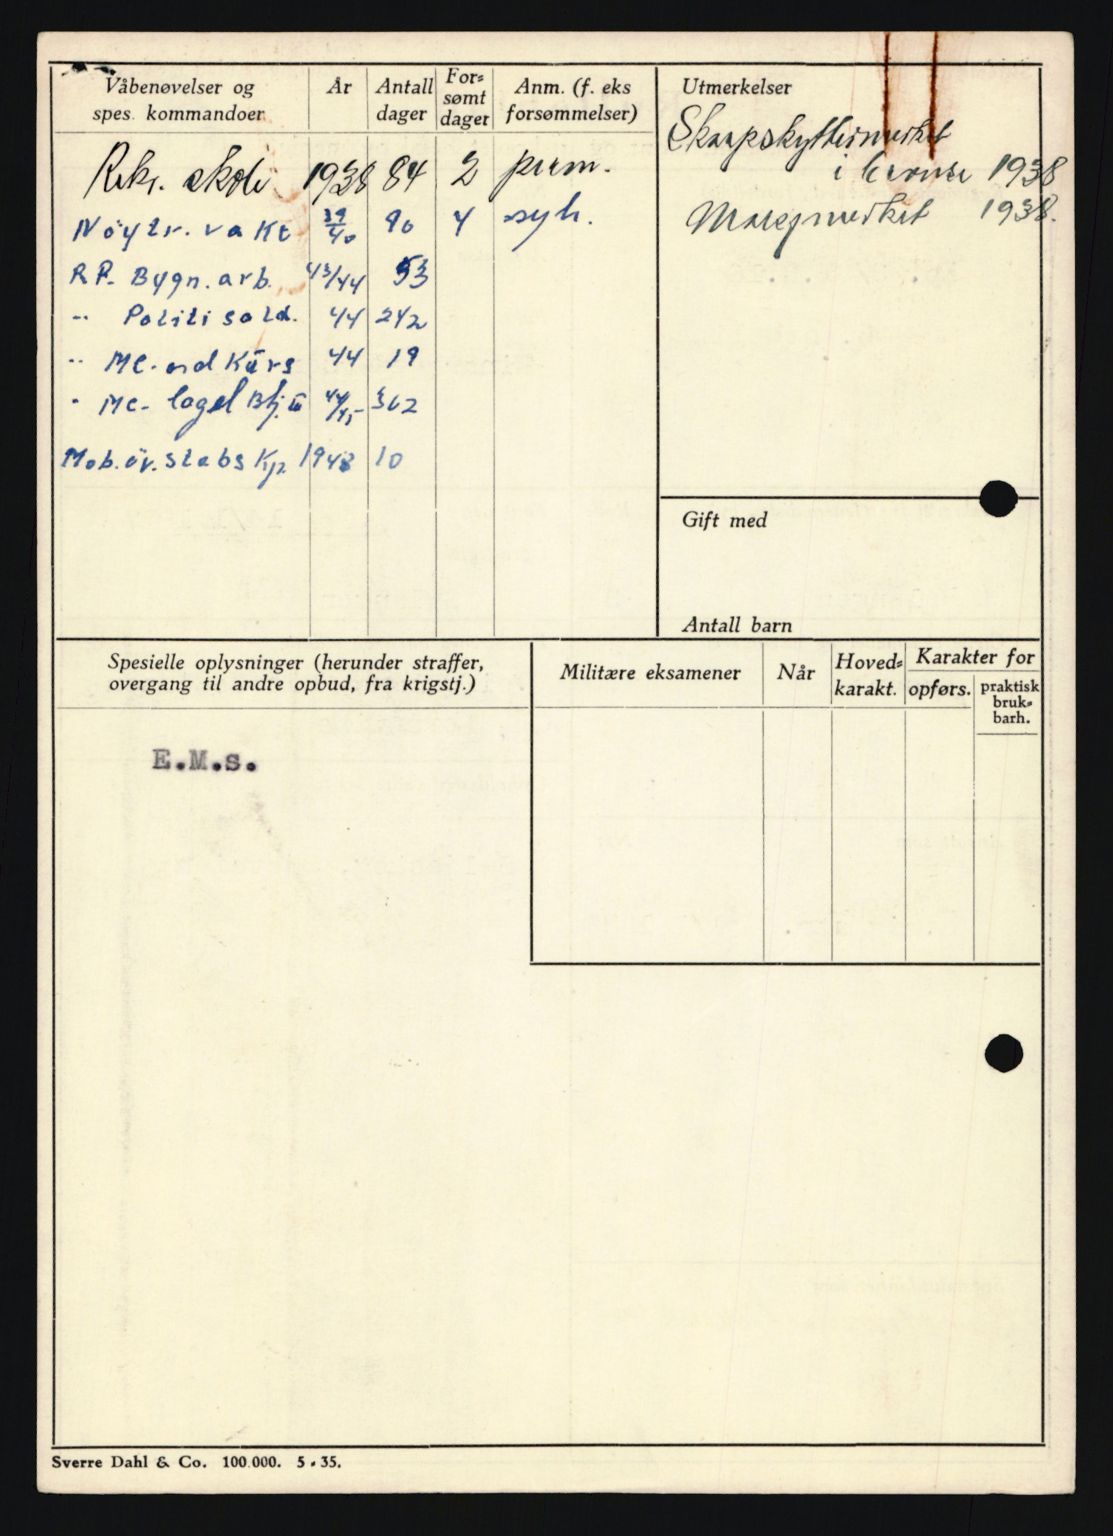 Våbenøvelser og
spes. kommandoer
År
Antall
dager
For-
sømt
dager
Anm. (f. eks
forsømmelser)
Rekr. skole 1938 84 2 perm.
Nøytr. vakt 39/40 90 4 syk.
R.P. Bygn. arb. 43/44 53
" Politisold. 44 242
" MC- ord Kurs 44 19
" MC- laget Btj. III 44/45 302
Mob. øv. Stabs Kp. 1948 10
Utmerkelser
Skarpskyttermerket
i bronse 1938
Marsjmerket 1938.
Gift med
Antall barn
Spesielle oplysninger (herunder straffer,
overgang til andre opbud, fra krigstj.)
E.M.s.
Militære eksamener
Når
Hoved-
karakt.
Karakter for
opførs.
praktisk
bruk-
barh.
Sverre Dahl & Co. 100.000. 5 - 35.